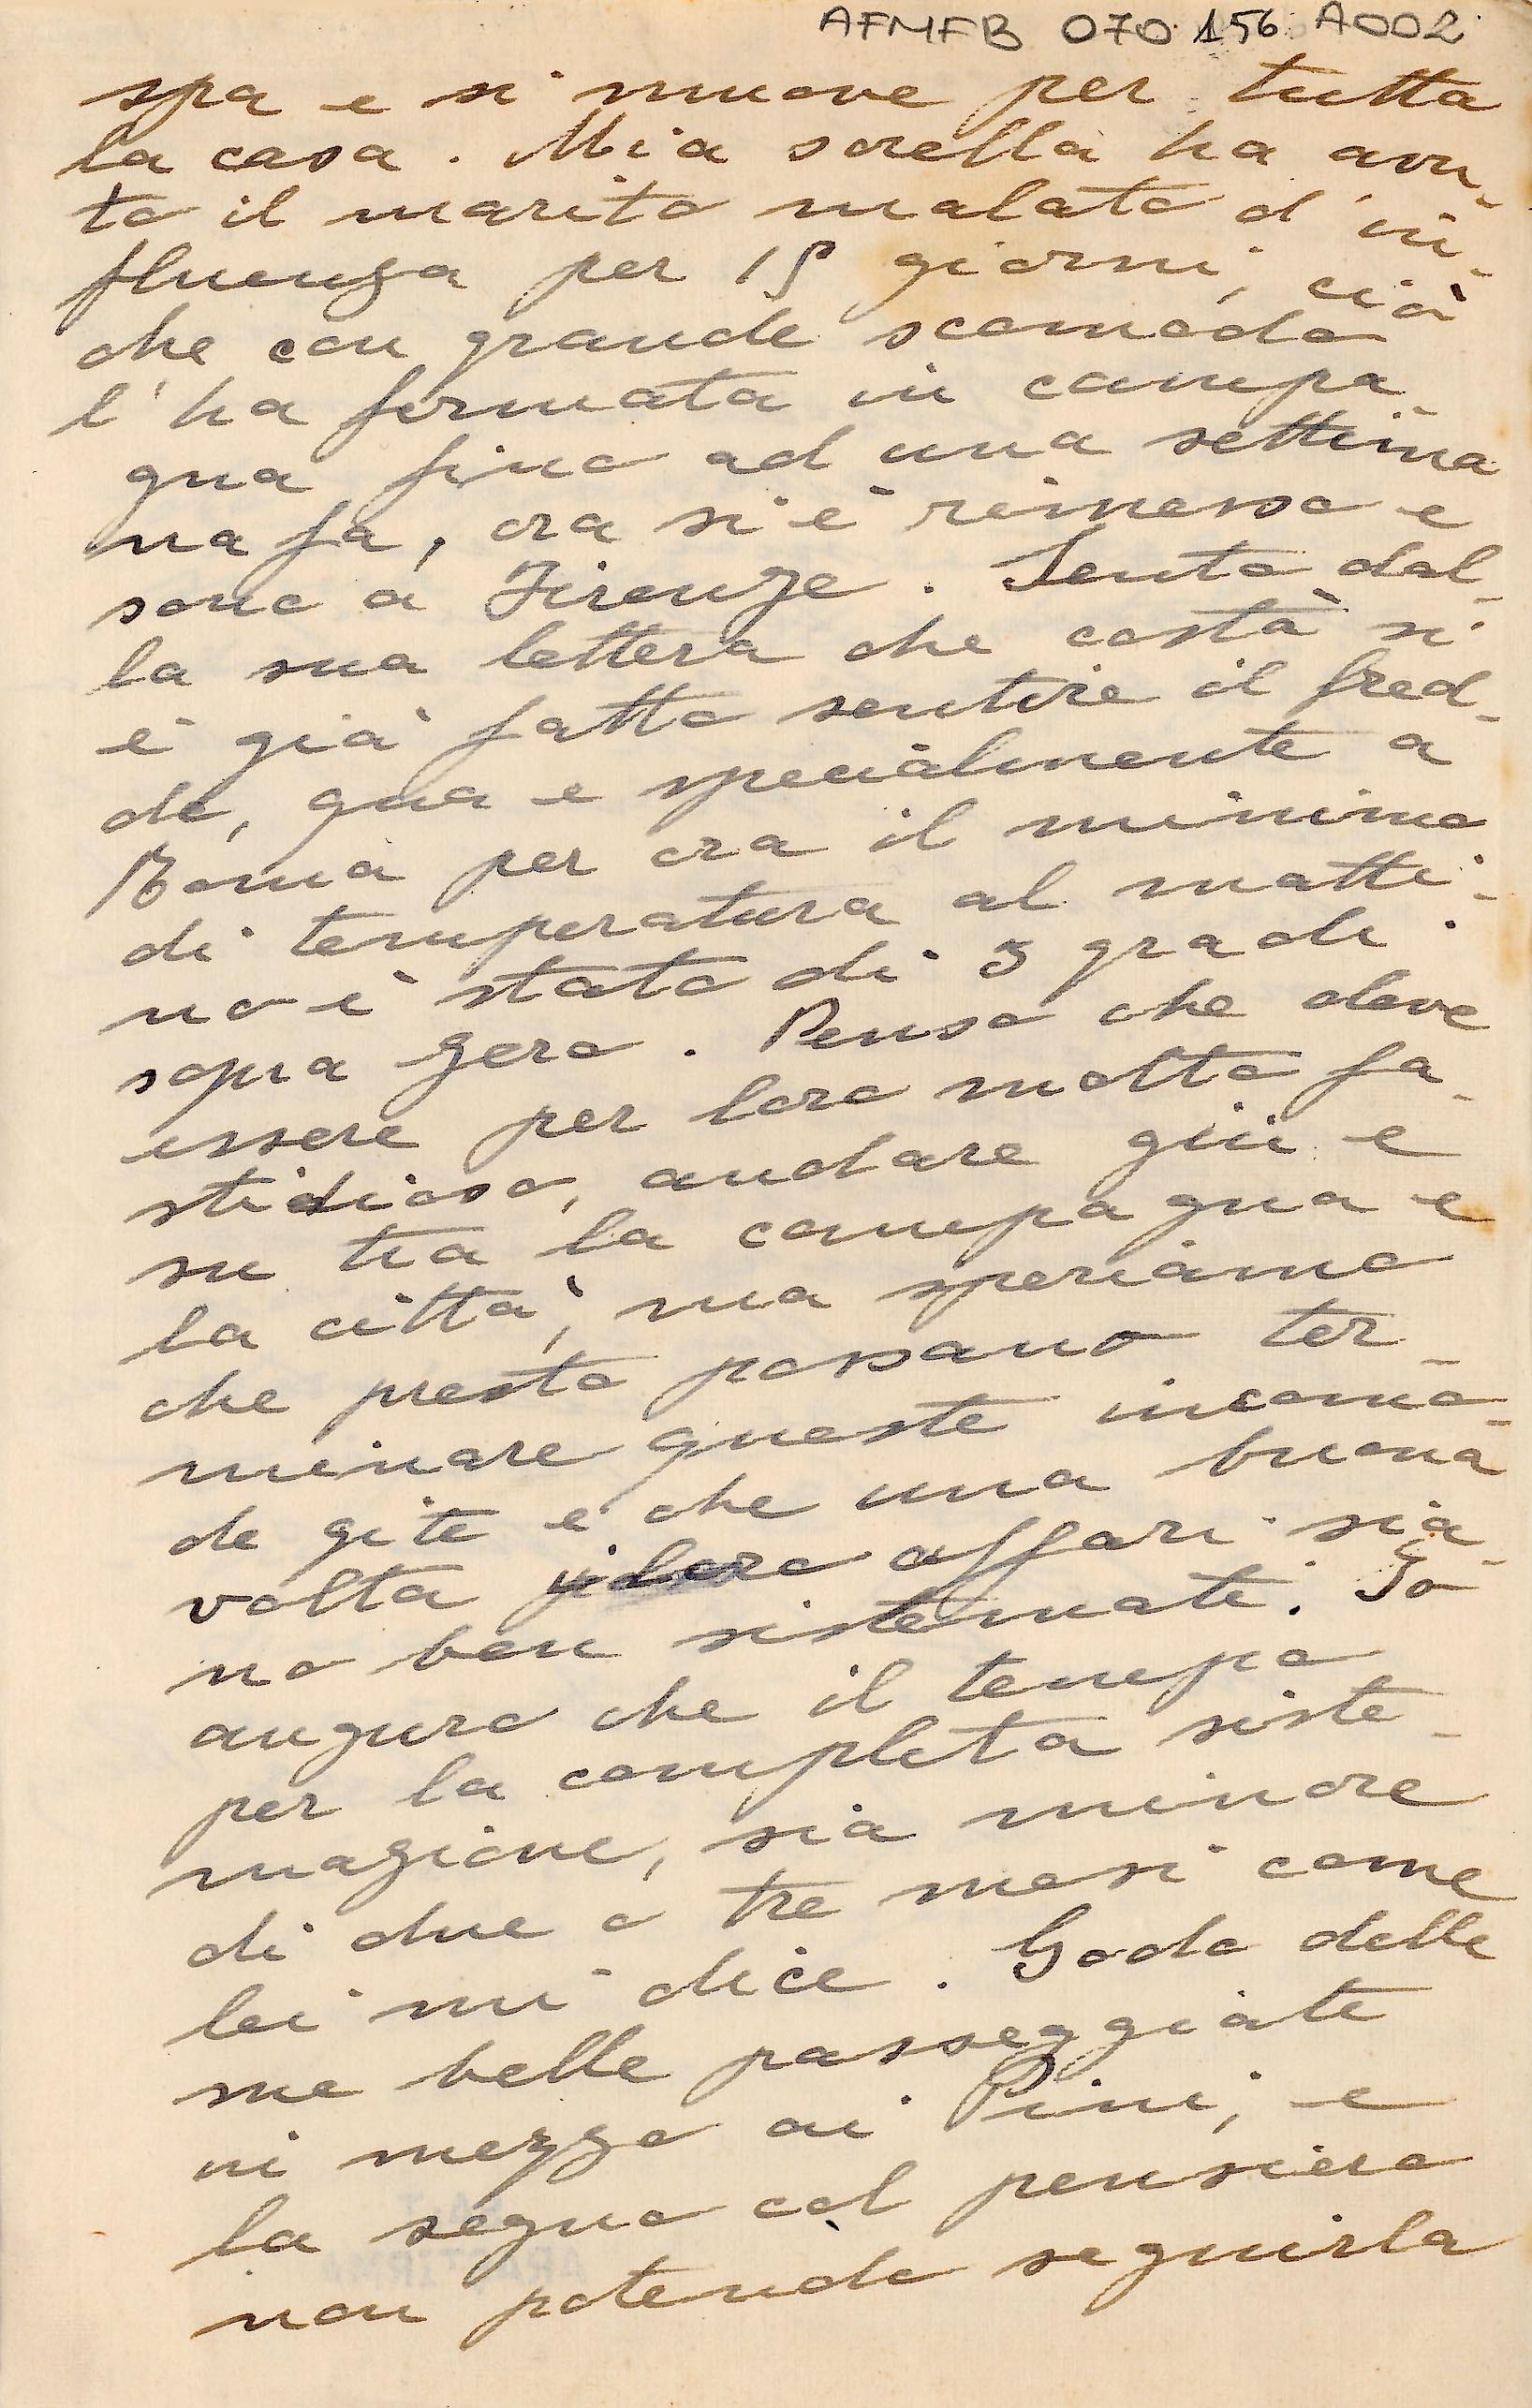 AFMFB 070 156 A002
spa e si muove per tutta
la casa. Mia sorella ha avu-
to il marito malato d'in-
fluenza per 15 giorni, ciò
che con grande scomodo
l'ha fermata in campa-
gna fino ad una settima
na fa, ora si è rimesso e
sono a Firenze. Sento dal-
la sua lettera che costà si
è già fatto sentire il fred-
do, qua e specialmente a
Roma per ora il minimo
di temperatura al matti-
no è stato di 3 gradi
sopra zero. Penso che deve
essere per loro molto fa-
stidioso, andare giù e
su tra la campagna e
la città, ma speriamo
che presto possano ter-
minare queste incomo-
de gite e che una buona
volta i loro affari sia-
no ben sistemati. Io
auguro che il tempo
per la completa siste-
mazione, sia minore
di due o tre mesi come
lei mi dice. Godo delle
sue belle passeggiate
in mezzo ai Pini, e
la seguo col pensiero
non potendo seguirla